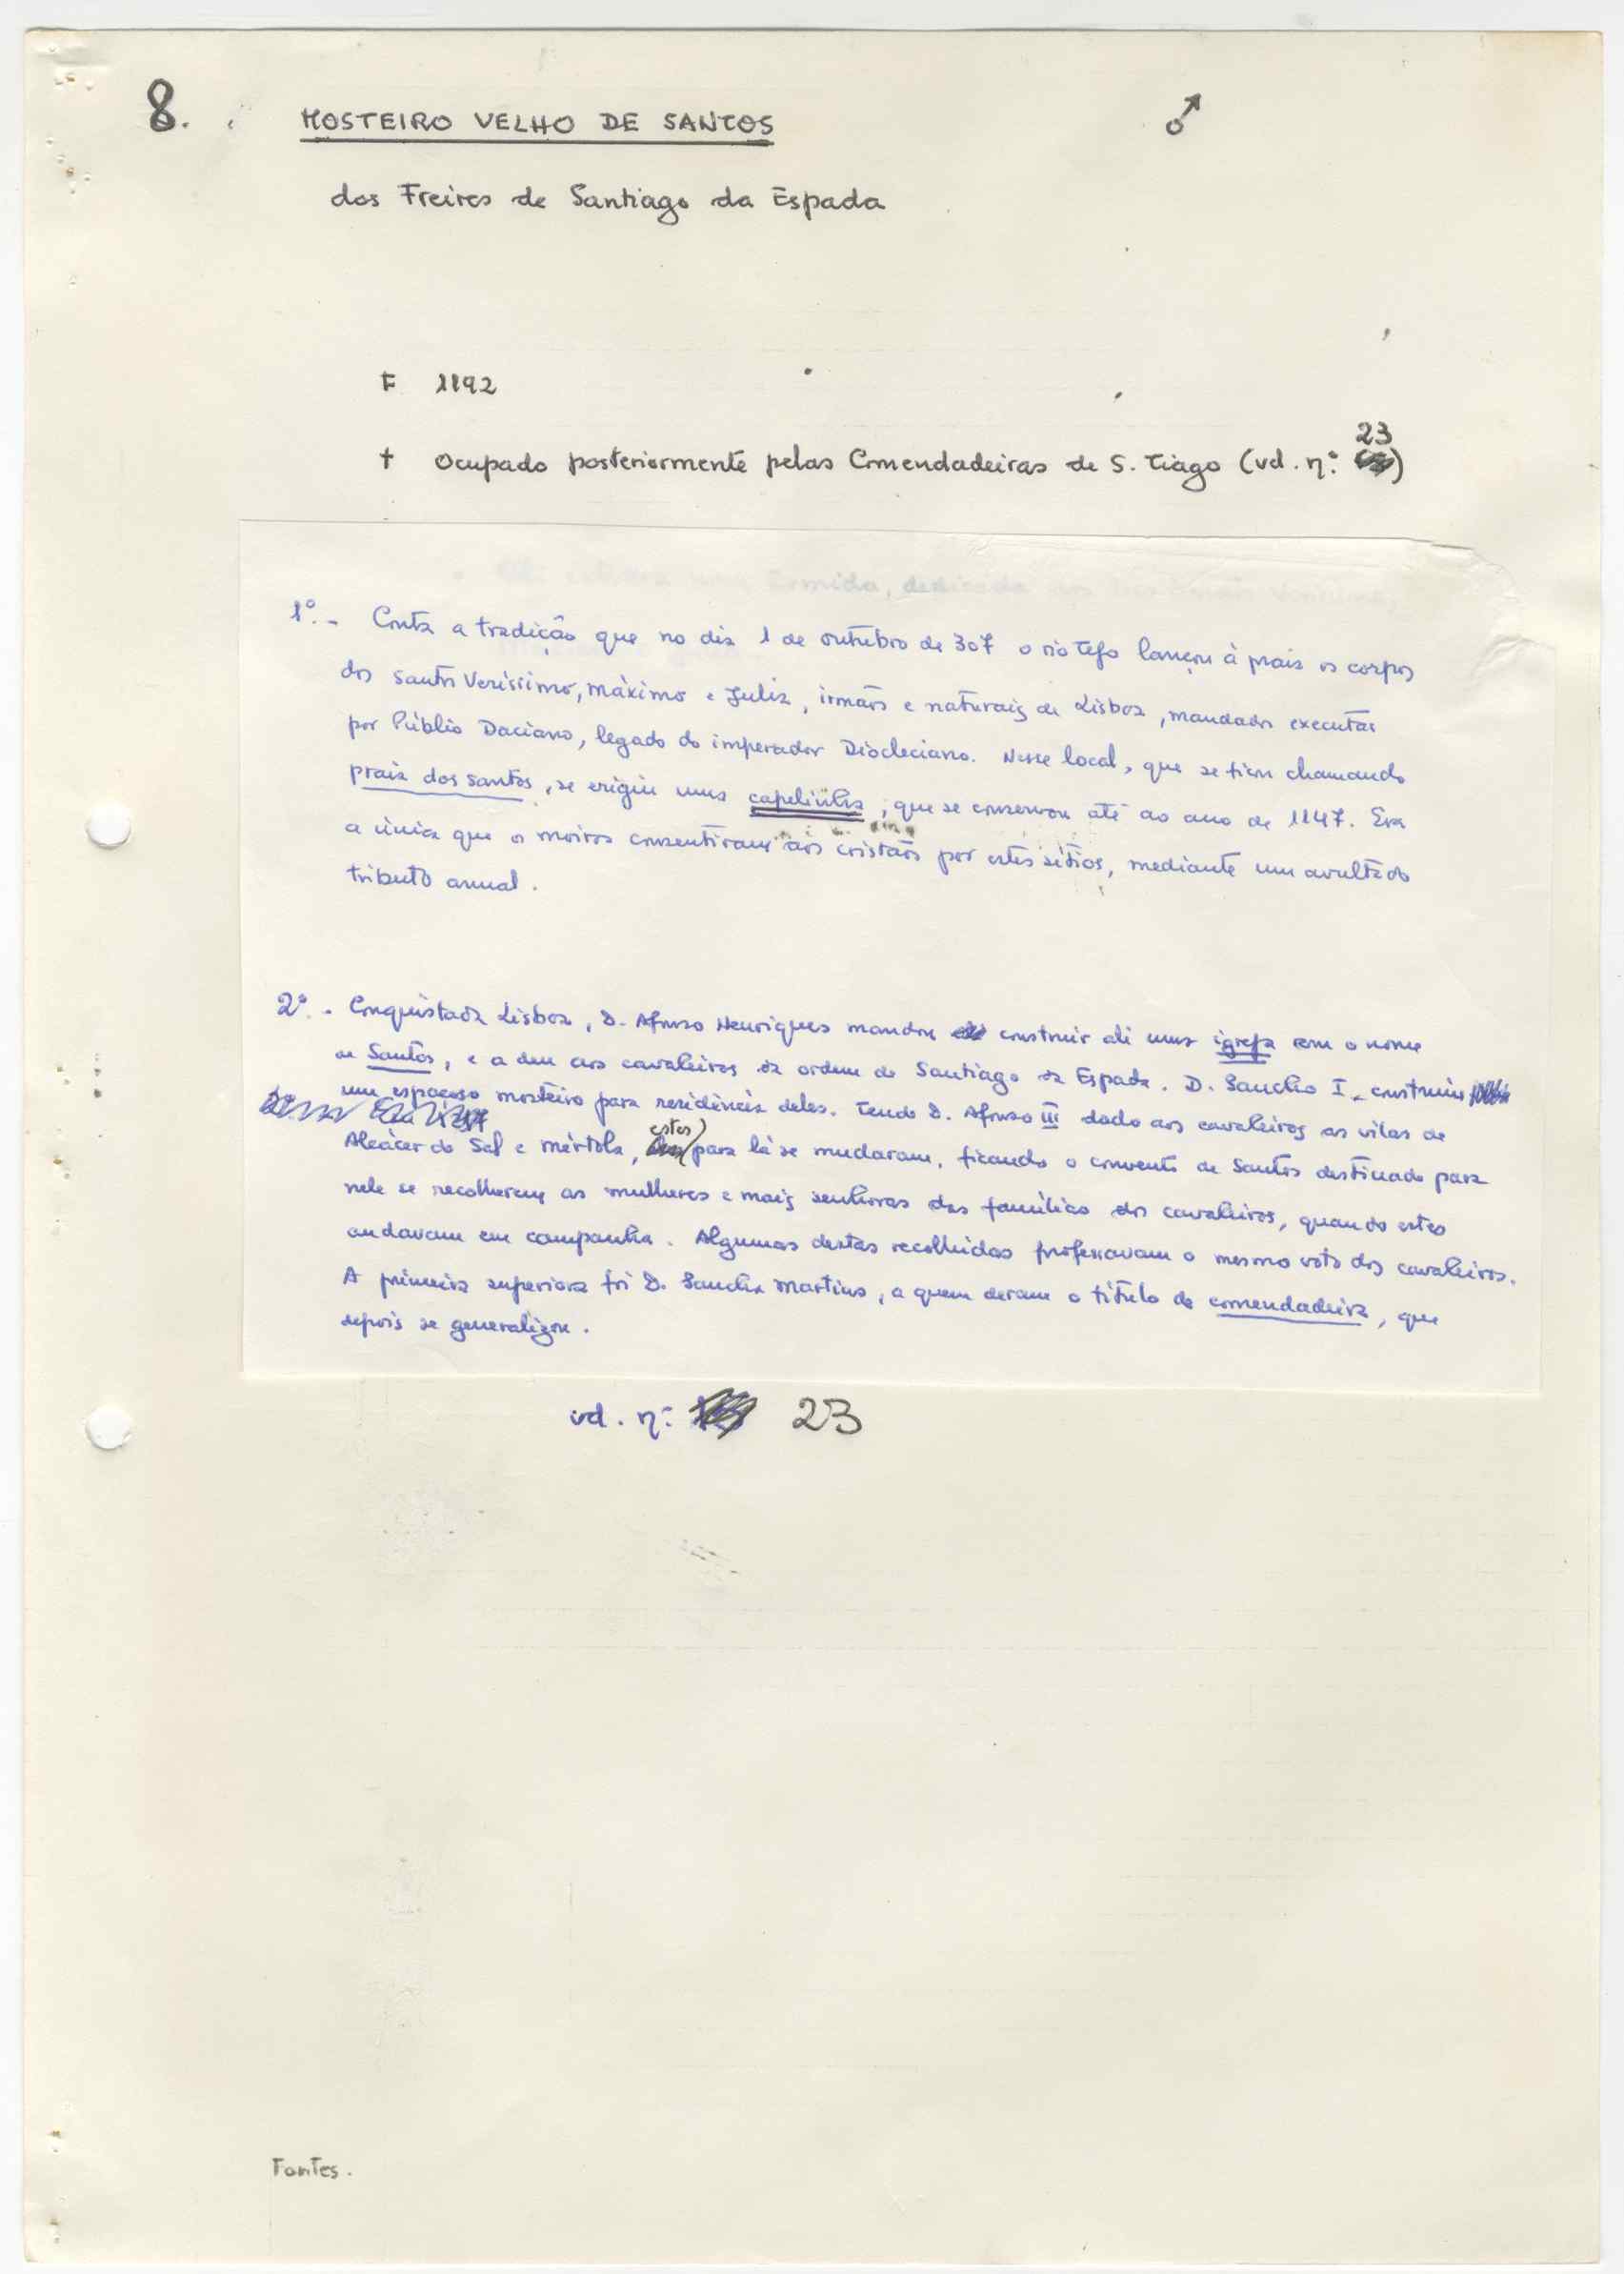 8.
MOSTEIRO VELHO DE SANTOS
♂
dos Freires de Santiago da Espada
F 1192
† Ocupado posteriormente pelas Comendadeiras de S. Tiago (vd. n.º 23)
1º.- Conta a tradição que no dia 1 de outubro de 307 o rio Tejo lançou à praia os corpos
dos santos Veríssimo, Máximo e Julia, irmãos e naturais de Lisboa, mandados executar
por Públio Daciano, legado do imperador Diocleciano. Nesse local, que se ficou chamando
praia dos santos, se erigiu uma capelinha, que se conservou até ao ano de 1147. Era
a única que os moiros consentiram aos cristãos por estes sítios, mediante um avultado
tributo anual.
2º.- Conquistada Lisboa, D. Afonso Henriques mandou construir ali uma igreja com o nome
de Santos, e a deu aos cavaleiros da ordem de Santiago da Espada. D. Sancho I construiu
um espaçoso mosteiro para residência deles. Tendo D. Afonso III dado aos cavaleiros as vilas de
Alcácer do Sal e Mértola, estes para lá se mudaram, ficando o convento de Santos destinado para
nele se recolherem as mulheres e mais senhoras das famílias dos cavaleiros, quando estes
andavam em campanha. Algumas destas recolhidas professavam o mesmo voto dos cavaleiros.
A primeira superiora foi D. Sancha Martins, a quem deram o título de comendadeira, que
depois se generalizou.
vd. n.º 23
Fontes.